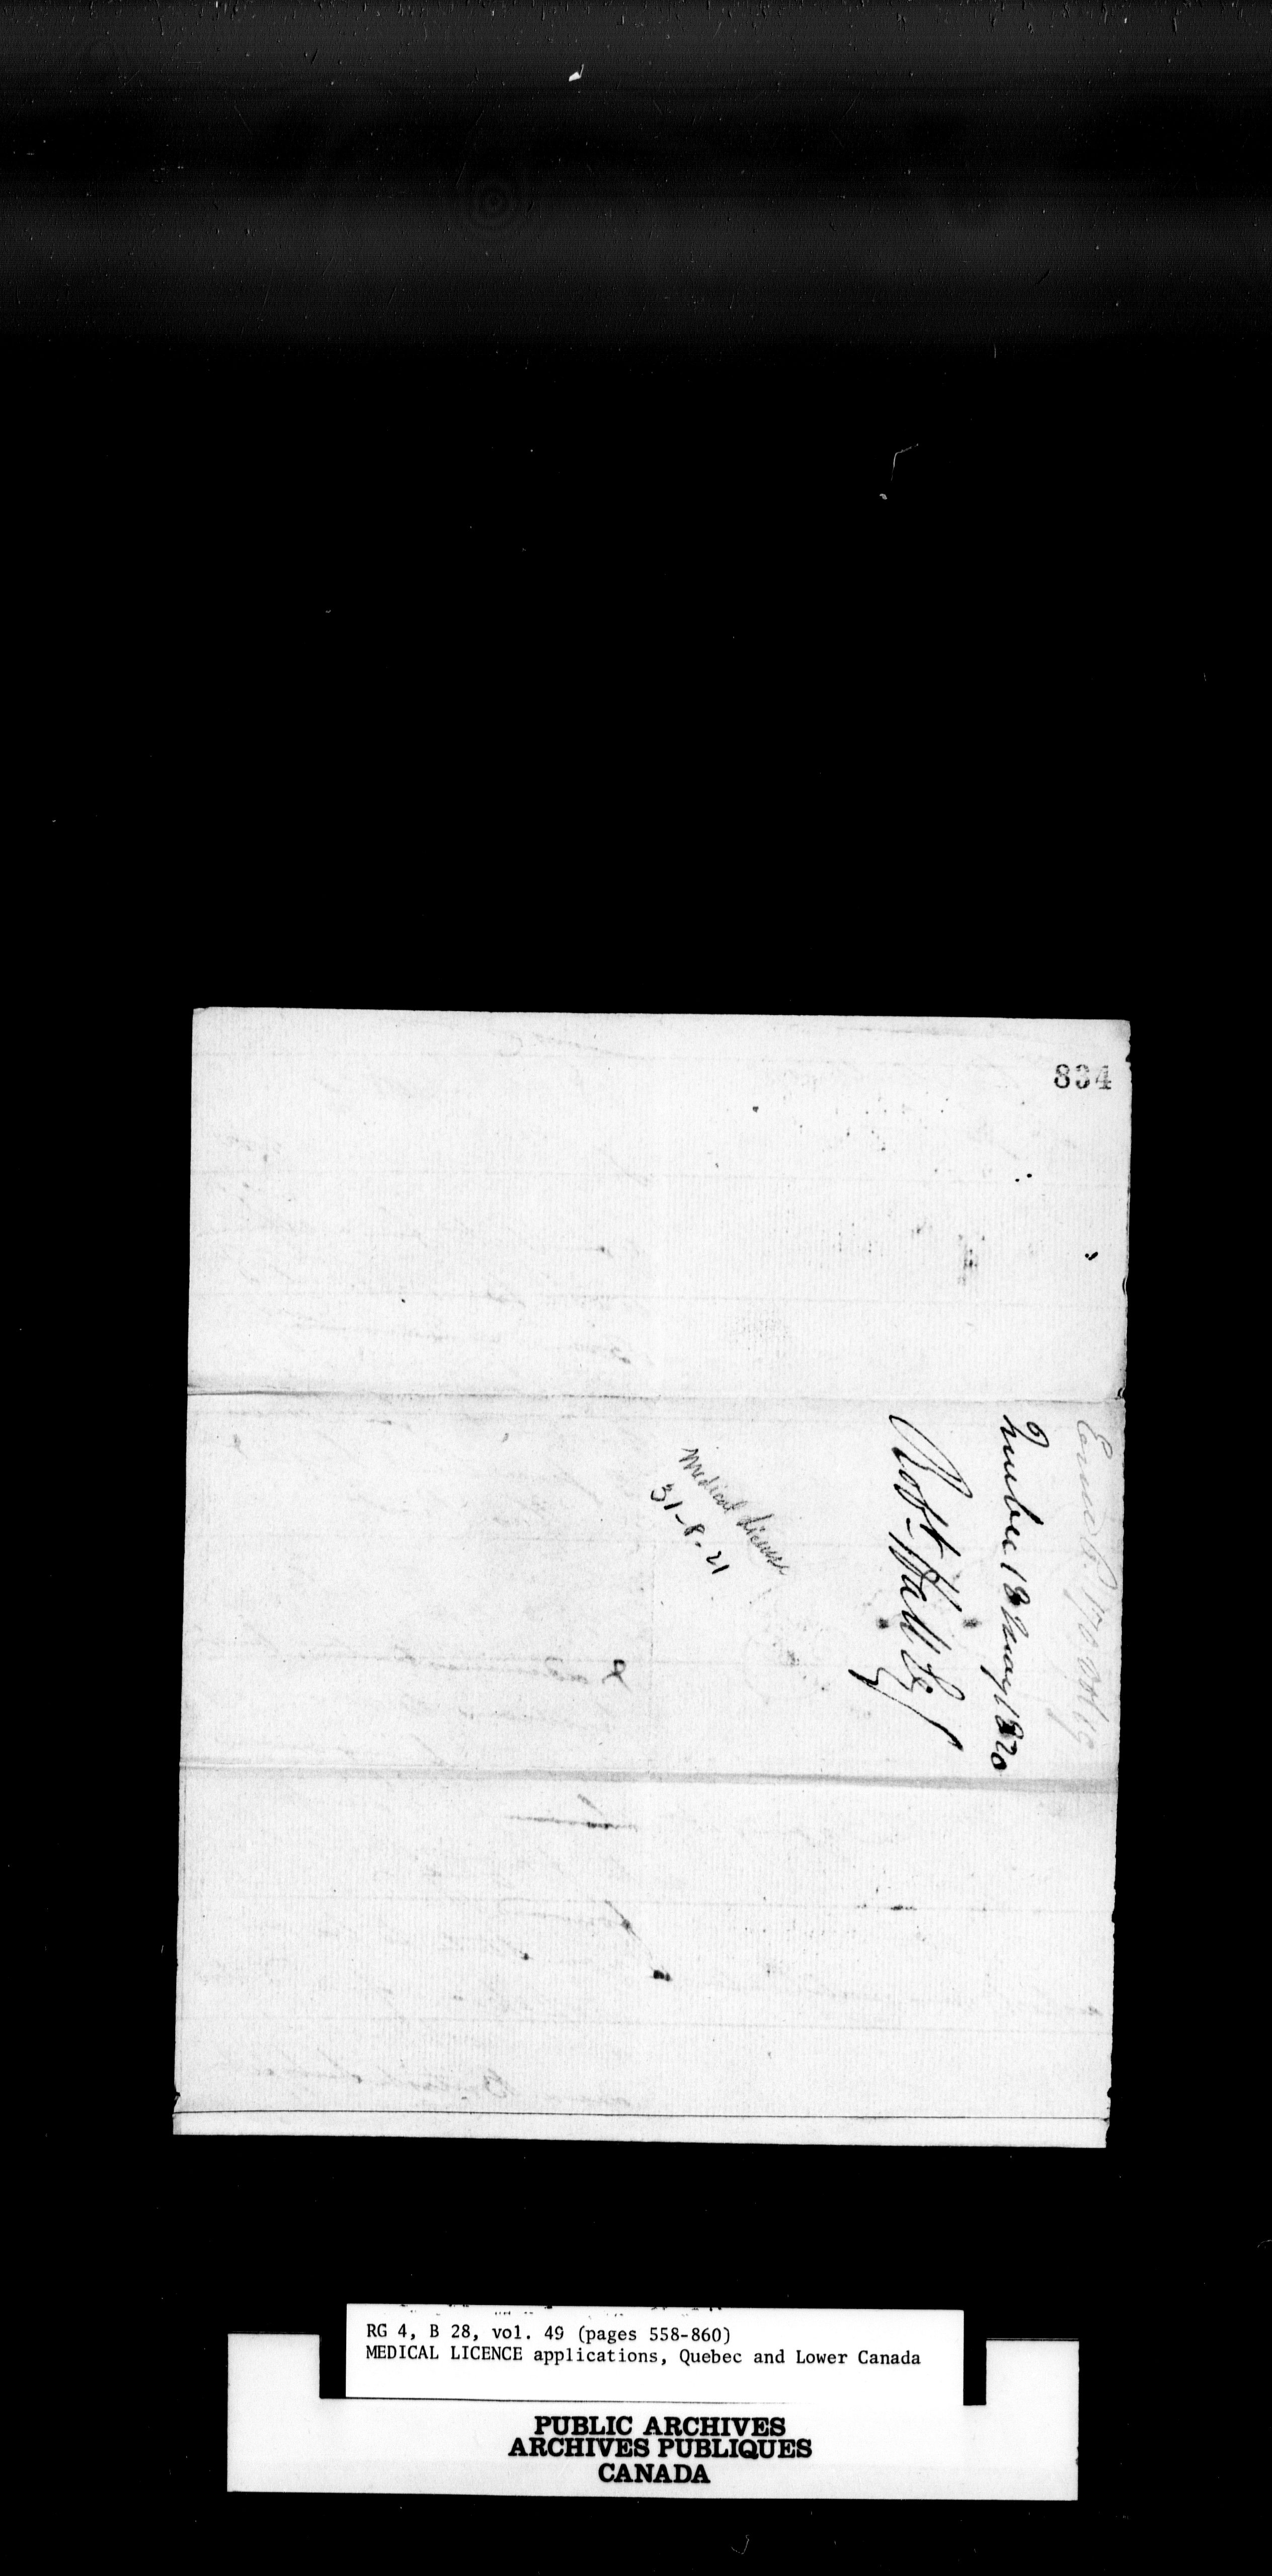 834
Quebec 18 May 1820
Robt. Hall
Medical License
31-8-21
RG 4, B 28, vol. 49 (pages 558-860)
MEDICAL LICENCE applications, Quebec and Lower Canada
PUBLIC ARCHIVES
ARCHIVES PUBLIQUES
CANADA